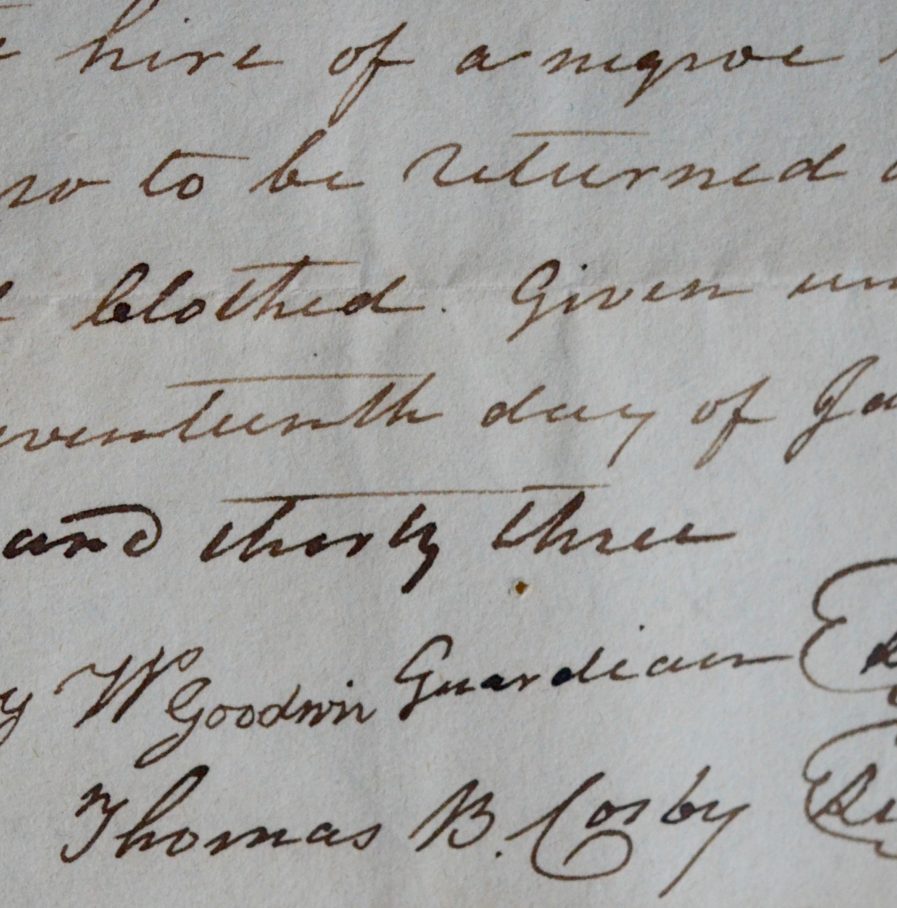 hire of a negroe
to be returned
clothed. Given un
eventeenth day of Ja
and thirty three
y W Goodwin Guardian
Thomas B. Cosby